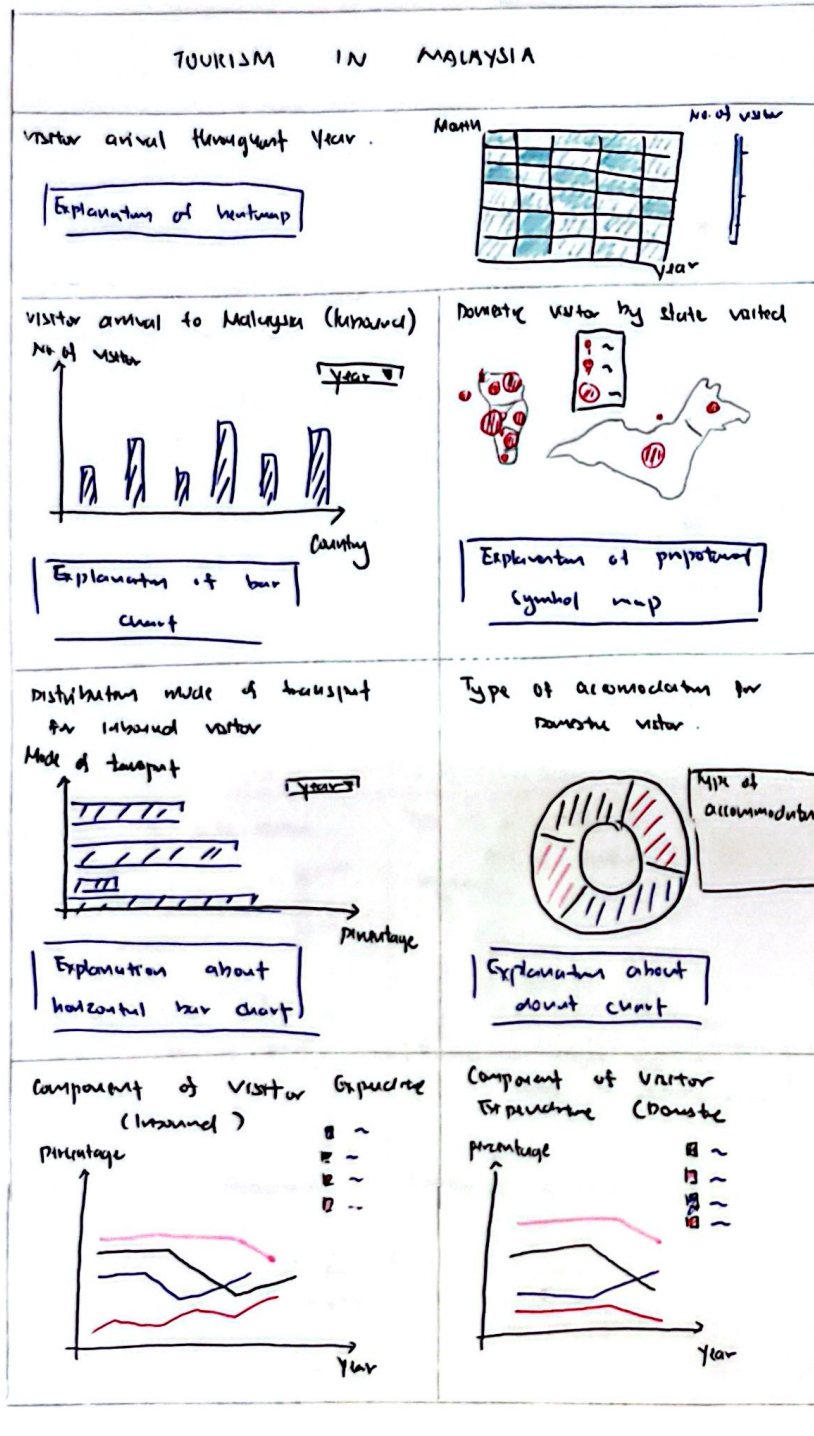 TOURISM IN MALAYSIA
Visitor arival throughout Year.
Explanation of heatmap
Month
No. of visitor
Year
Visitor arrival to Malaysia (Inbound)
No. of visitor
Year
Country
Explanation of bar
chart
Domestic visitor by state visited
Explanation of
symbol map
Distribution mode of transport
for inbound visitor
Mode of
Year
percentage
Explanation about
horizontal bar chart
Type of accomodation for
Domestic visitor.
Type of
accommodation
Explanation about
donut chart
Component of Visitor
(Inbound)
percentage
Year
Component of Visitor
(Domestic
percentage
Year